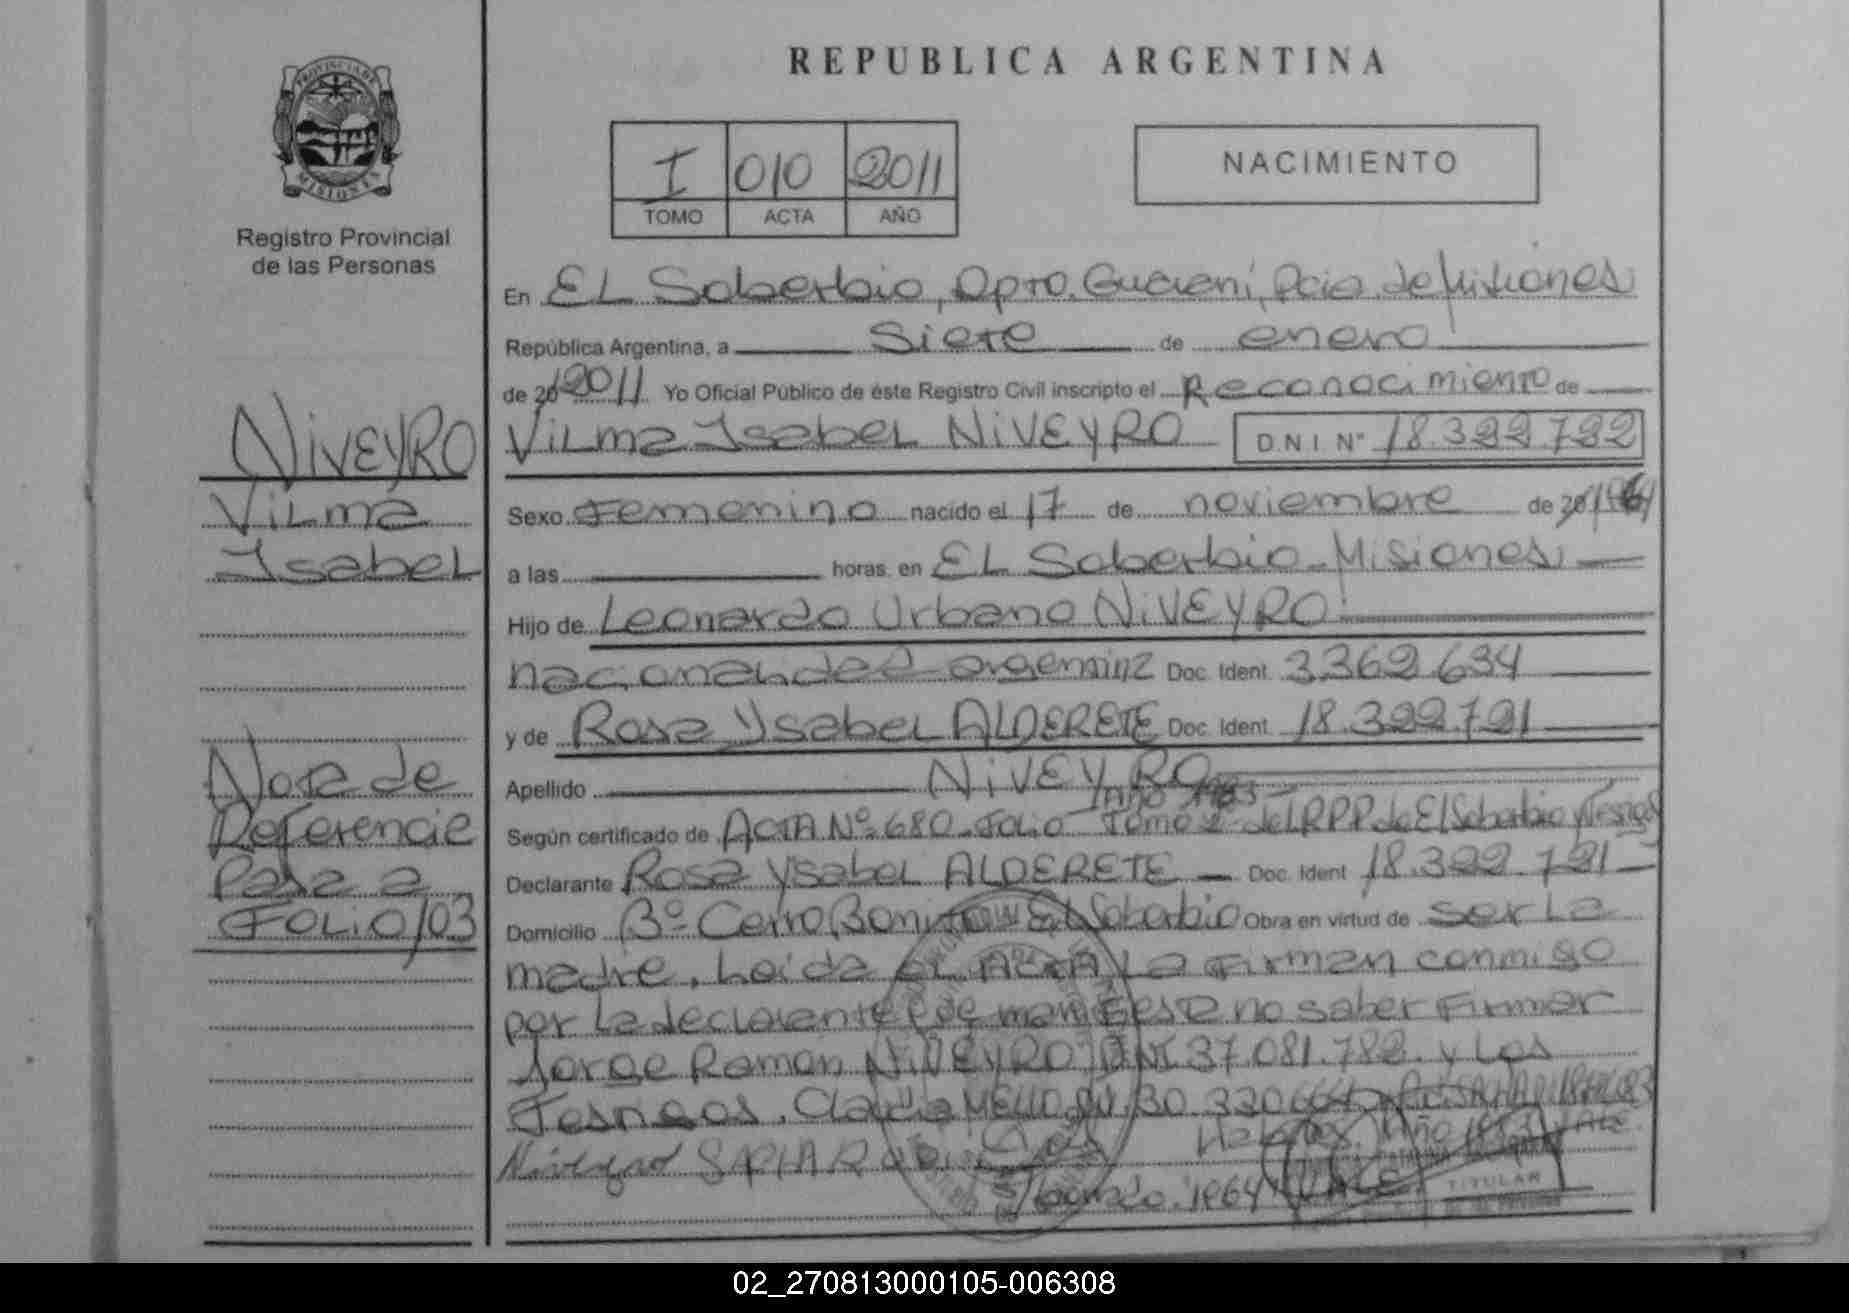 PROVINCIA DE
MISIONES
Registro Provincial
de las Personas
NIVEYRO
Vilma
Isabel
Nota de
Referencia
Pasa a
Folio 103
REPUBLICA ARGENTINA
I 010 2011
TOMO ACTA AÑO
NACIMIENTO
En El Soberbio, Dpto. Guarani, Pcia. de Misiones
República Argentina, a siete de enero
de 20 2011 Yo Oficial Público de éste Registro Civil inscripto el Reconocimiento de
Vilma Isabel NIVEYRO D.N.I. Nº 18.322.722
Sexo Femenino nacido el 17 de noviembre de 20 1964
a las horas, en El Soberbio - Misiones
Hijo de Leonardo Urbano NIVEYRO
nacionalidad argentina Doc. Ident. 3.362.634
y de Rosa Ysabel ALDERETE Doc. Ident. 18.322.721
Apellido NIVEYRO
Año 1983
Según certificado de ACTA Nº 680 - Folio - Tomo 2 - del RPP de El Soberbio y Testigos
Declarante Rosa Ysabel ALDERETE - Doc. Ident. 18.322.721
Domicilio Bº Cerro Bonito El Soberbio Obra en virtud de ser la
madre. Leida el ACTA la firman conmigo
por la declarante que manifiesta no saber firmar
Jorge Ramon NIVEYRO DNI 37.081.782 y los
Testigos. Claudia MELLO 30.320.664
Niveyro
Año 1983 Vale.
1964 VALE
TITULAR
02_270813000105-006308